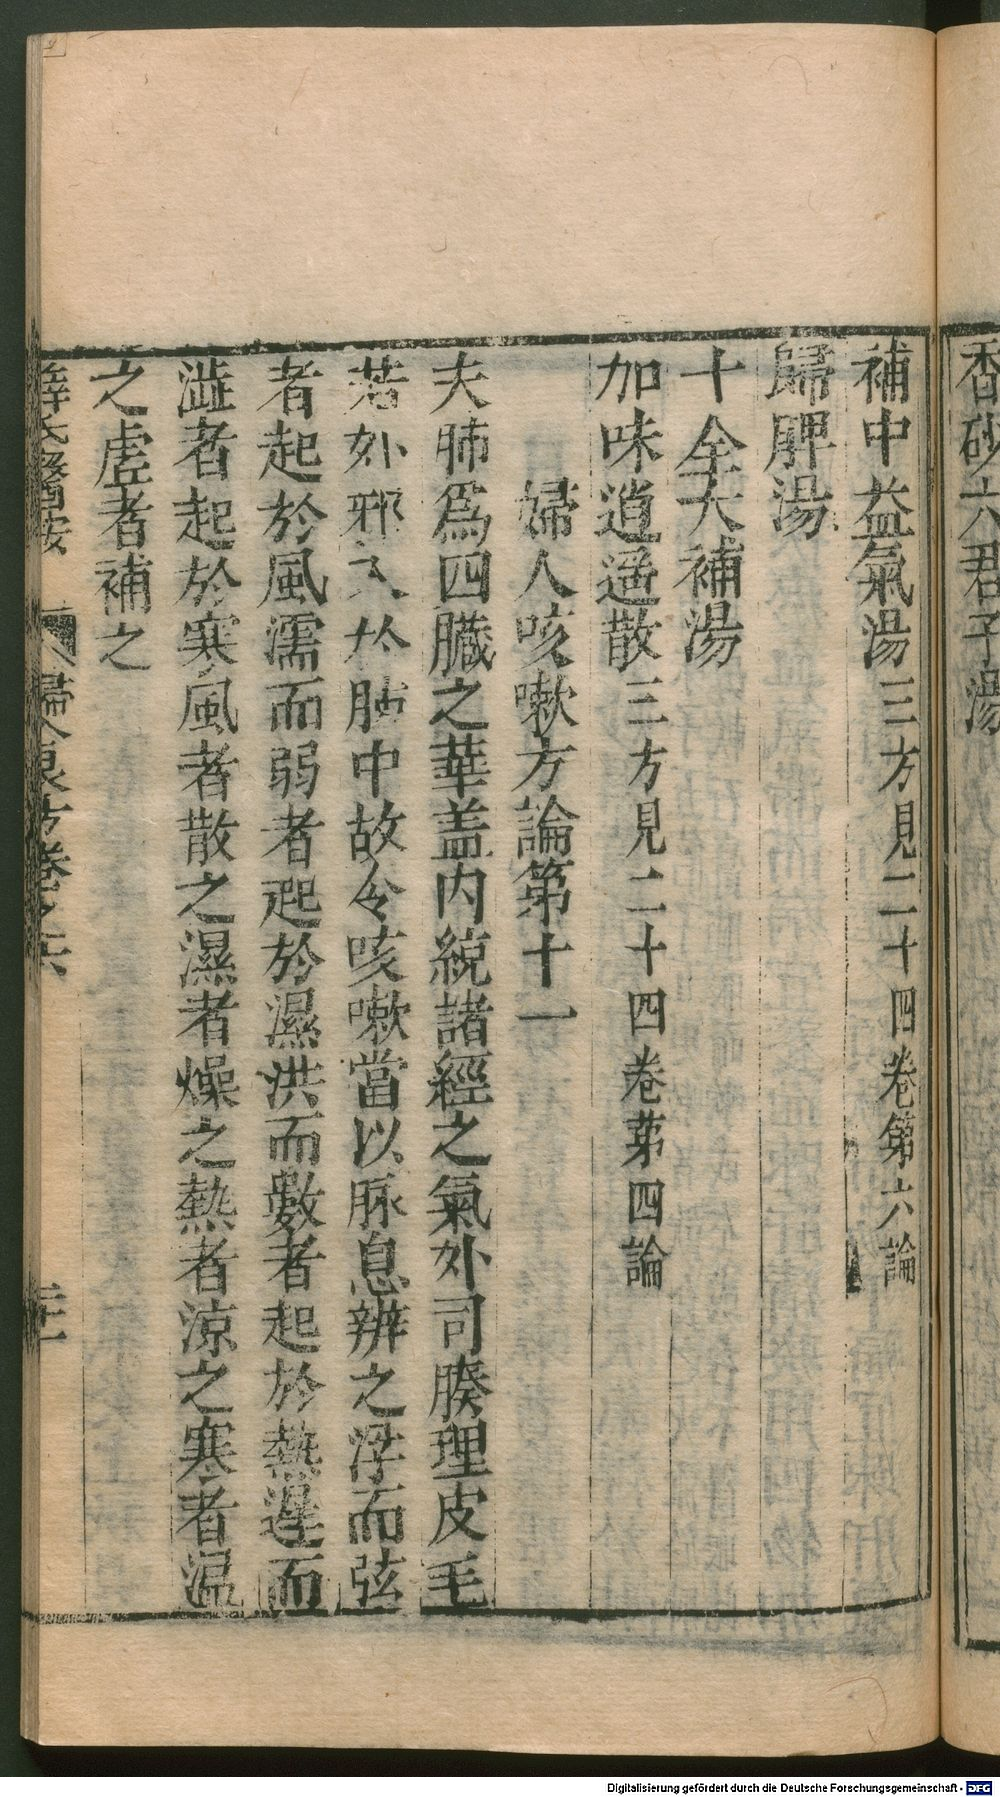 香砂六君子湯
補中益氣湯三方見二十四卷第六論
歸脾湯
十全大補湯
加味逍遥散三方見二十四卷苐四論
婦人咳嗽方論第十一
夫肺爲四臓之華盖内統諸經之氣外司腠理皮毛
若外邪入於肺中故令咳嗽當以脉息辨之浮而弦
者起於風濡而弱者起於濕洪而數者起於熱遲而
澁者起於寒風者散之濕者燥之熱者涼之寒者温
之虚者補之
薛氏醫按
婦人良方卷之六
二十一
Digitalisierung gefördert durch die Deutsche Forschungsgemeinschaft - DFG